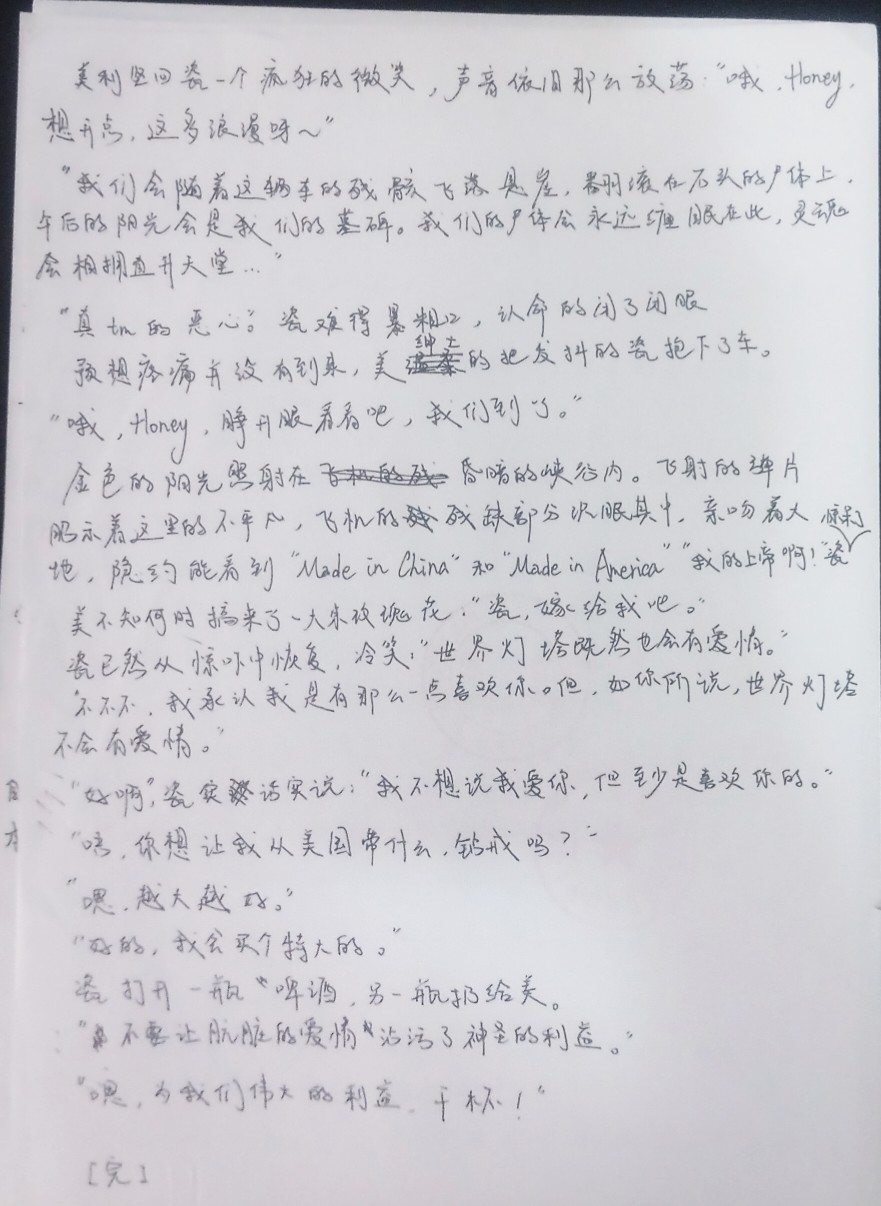 美利坚回瓷一个疯狂的微笑，声音依旧那么放荡："哦，Honey，
想开点，这多浪漫呀～"
"我们会随着这辆车的残骸飞落悬崖，翻滚在石头的尸体上，
午后的阳光会是我们的墓碑。我们的尸体会永远缠眠在此，灵魂
会相拥直升天堂..."
"真tm的恶心"。瓷难得暴粗口，认命的闭了闭眼
预想疼痛并没有到来，美绅士的把发抖的瓷抱下了车。
"哦，Honey，睁开眼看看吧，我们到了。"
金色的阳光照射在昏暗的峡谷内。飞射的弹片
昭示着这里的不平凡，飞机的残缺部分沉眠其中，亲吻着大
地，隐约能看到"Made in China"和"Made in America" "我的上帝啊！"瓷惊呆
美不知何时搞来了一大朵玫瑰花："瓷，嫁给我吧。"
瓷已然从惊吓中恢复，冷笑："世界灯塔既然也会有爱情。"
"不不不，我承认我是有那么一点喜欢你。但，如你所说，世界灯塔
不会有爱情。"
"好啊"，瓷实话实说："我不想说我爱你，但至少是喜欢你的。"
"唔，你想让我从美国带什么，钻戒吗？"
"嗯，越大越好。"
"好的，我会买个特大的。"
瓷打开一瓶啤酒，另一瓶扔给美。
"不要让肮脏的爱情沾污了神圣的利益。"
"嗯，为我们伟大的利益，干杯！"
[完]